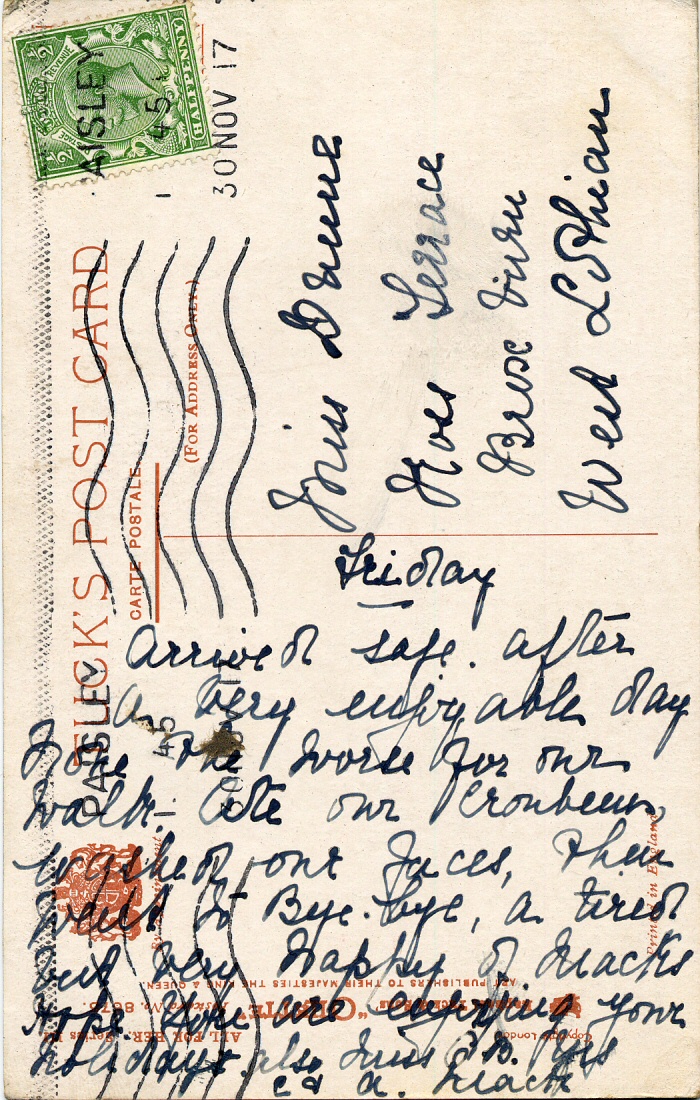 TUCK'S POST CARD
CARTE POSTALE
(FOR ADDRESS ONLY.)
PAISLEY
45
30 NOV 17
AISLEY
45
30 NOV 17
Miss Dunne
Ross Terrace
Broxburn
West Lothian
Friday
Arrived safe. after
a very enjoyable day
None the worse for our
walk. Ate our
washed our faces, then
went to Bye-bye, a tired
but very happy
Hope you are enjoying your
holidays. also Miss B. Yrs
a.
ART PUBLISHERS TO THEIR MAJESTIES THE KING & QUEEN.
"OILETTE"
No. 8673.
ALL FOR HER. Series
Copyright London
Printed in England